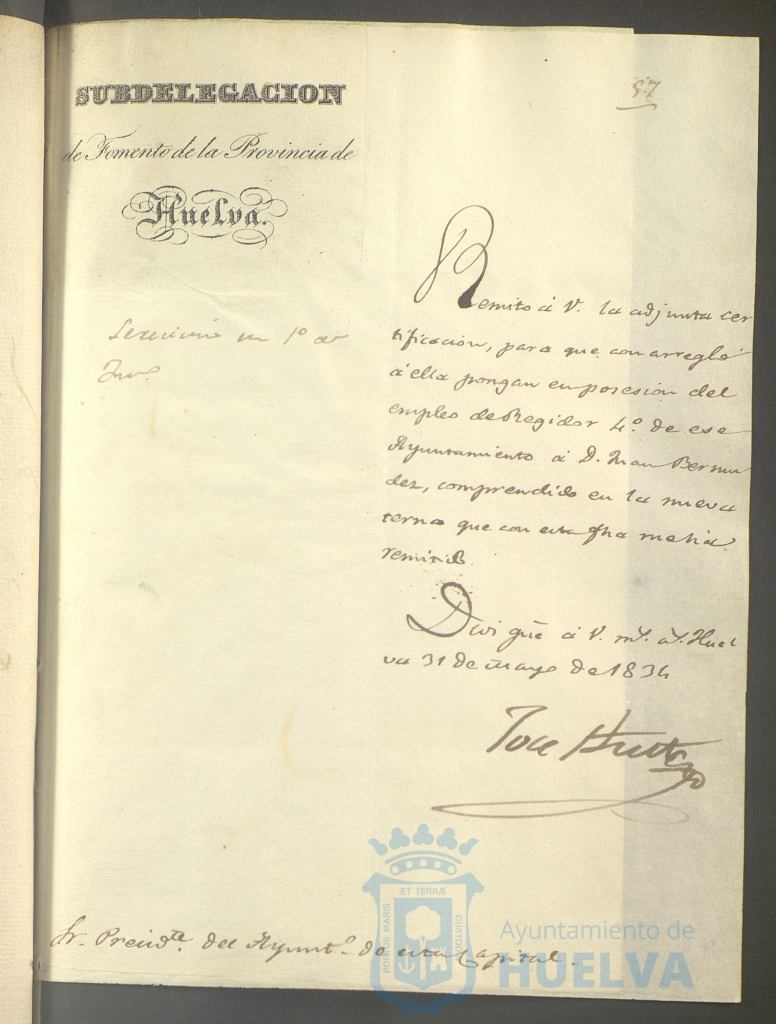 57
SUBDELEGACION
de Fomento de la Provincia de
Huelva.
Remito á V. la adjunta cer
tificacion, para que con arreglo
á ella pongan en posesion del
empleo de Regidor 4º. de ese
Ayuntamiento á D. Juan Bermu
dez, comprendido en la nueva
terna que con esta fha me ha
remitido.
en 1º de
Jun.º
Dios gūe á V. mˢ. aˢ. Huel
va 31 de mayo de 1834
Jose Huet
Sr. Presidᵗᵉ. del Ayuntº. de esta Capital.
PORTUS MARIS
ET TERRÆ
CUSTODIA
Ayuntamiento de
HUELVA